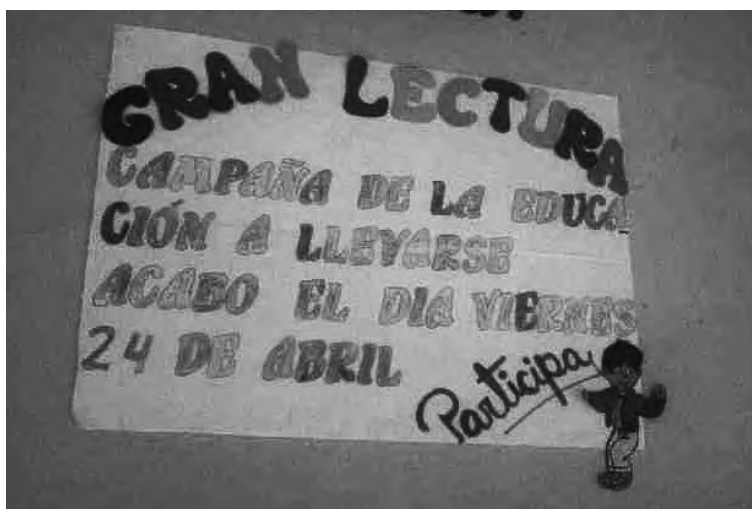 GRAN LECTURA
CAMPAÑA DE LA EDUCA
CIÓN A LLEVARSE
ACABO EL DIA VIERNES
24 DE ABRIL
Participa